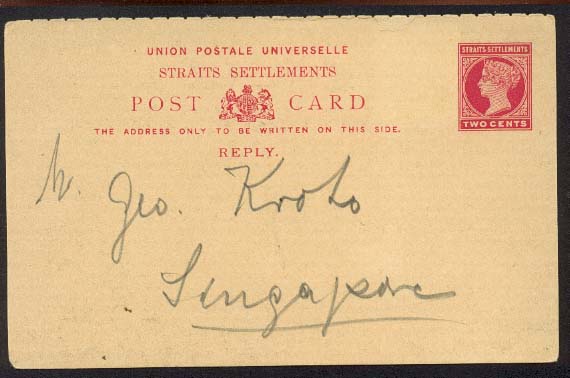 UNION POSTALE UNIVERSELLE
STRAITS SETTLEMENTS
POST CARD
THE ADDRESS ONLY TO BE WRITTEN ON THIS SIDE.
REPLY.
STRAITS SETTLEMENTS
TWO CENTS
Geo. Kroto
Singapore